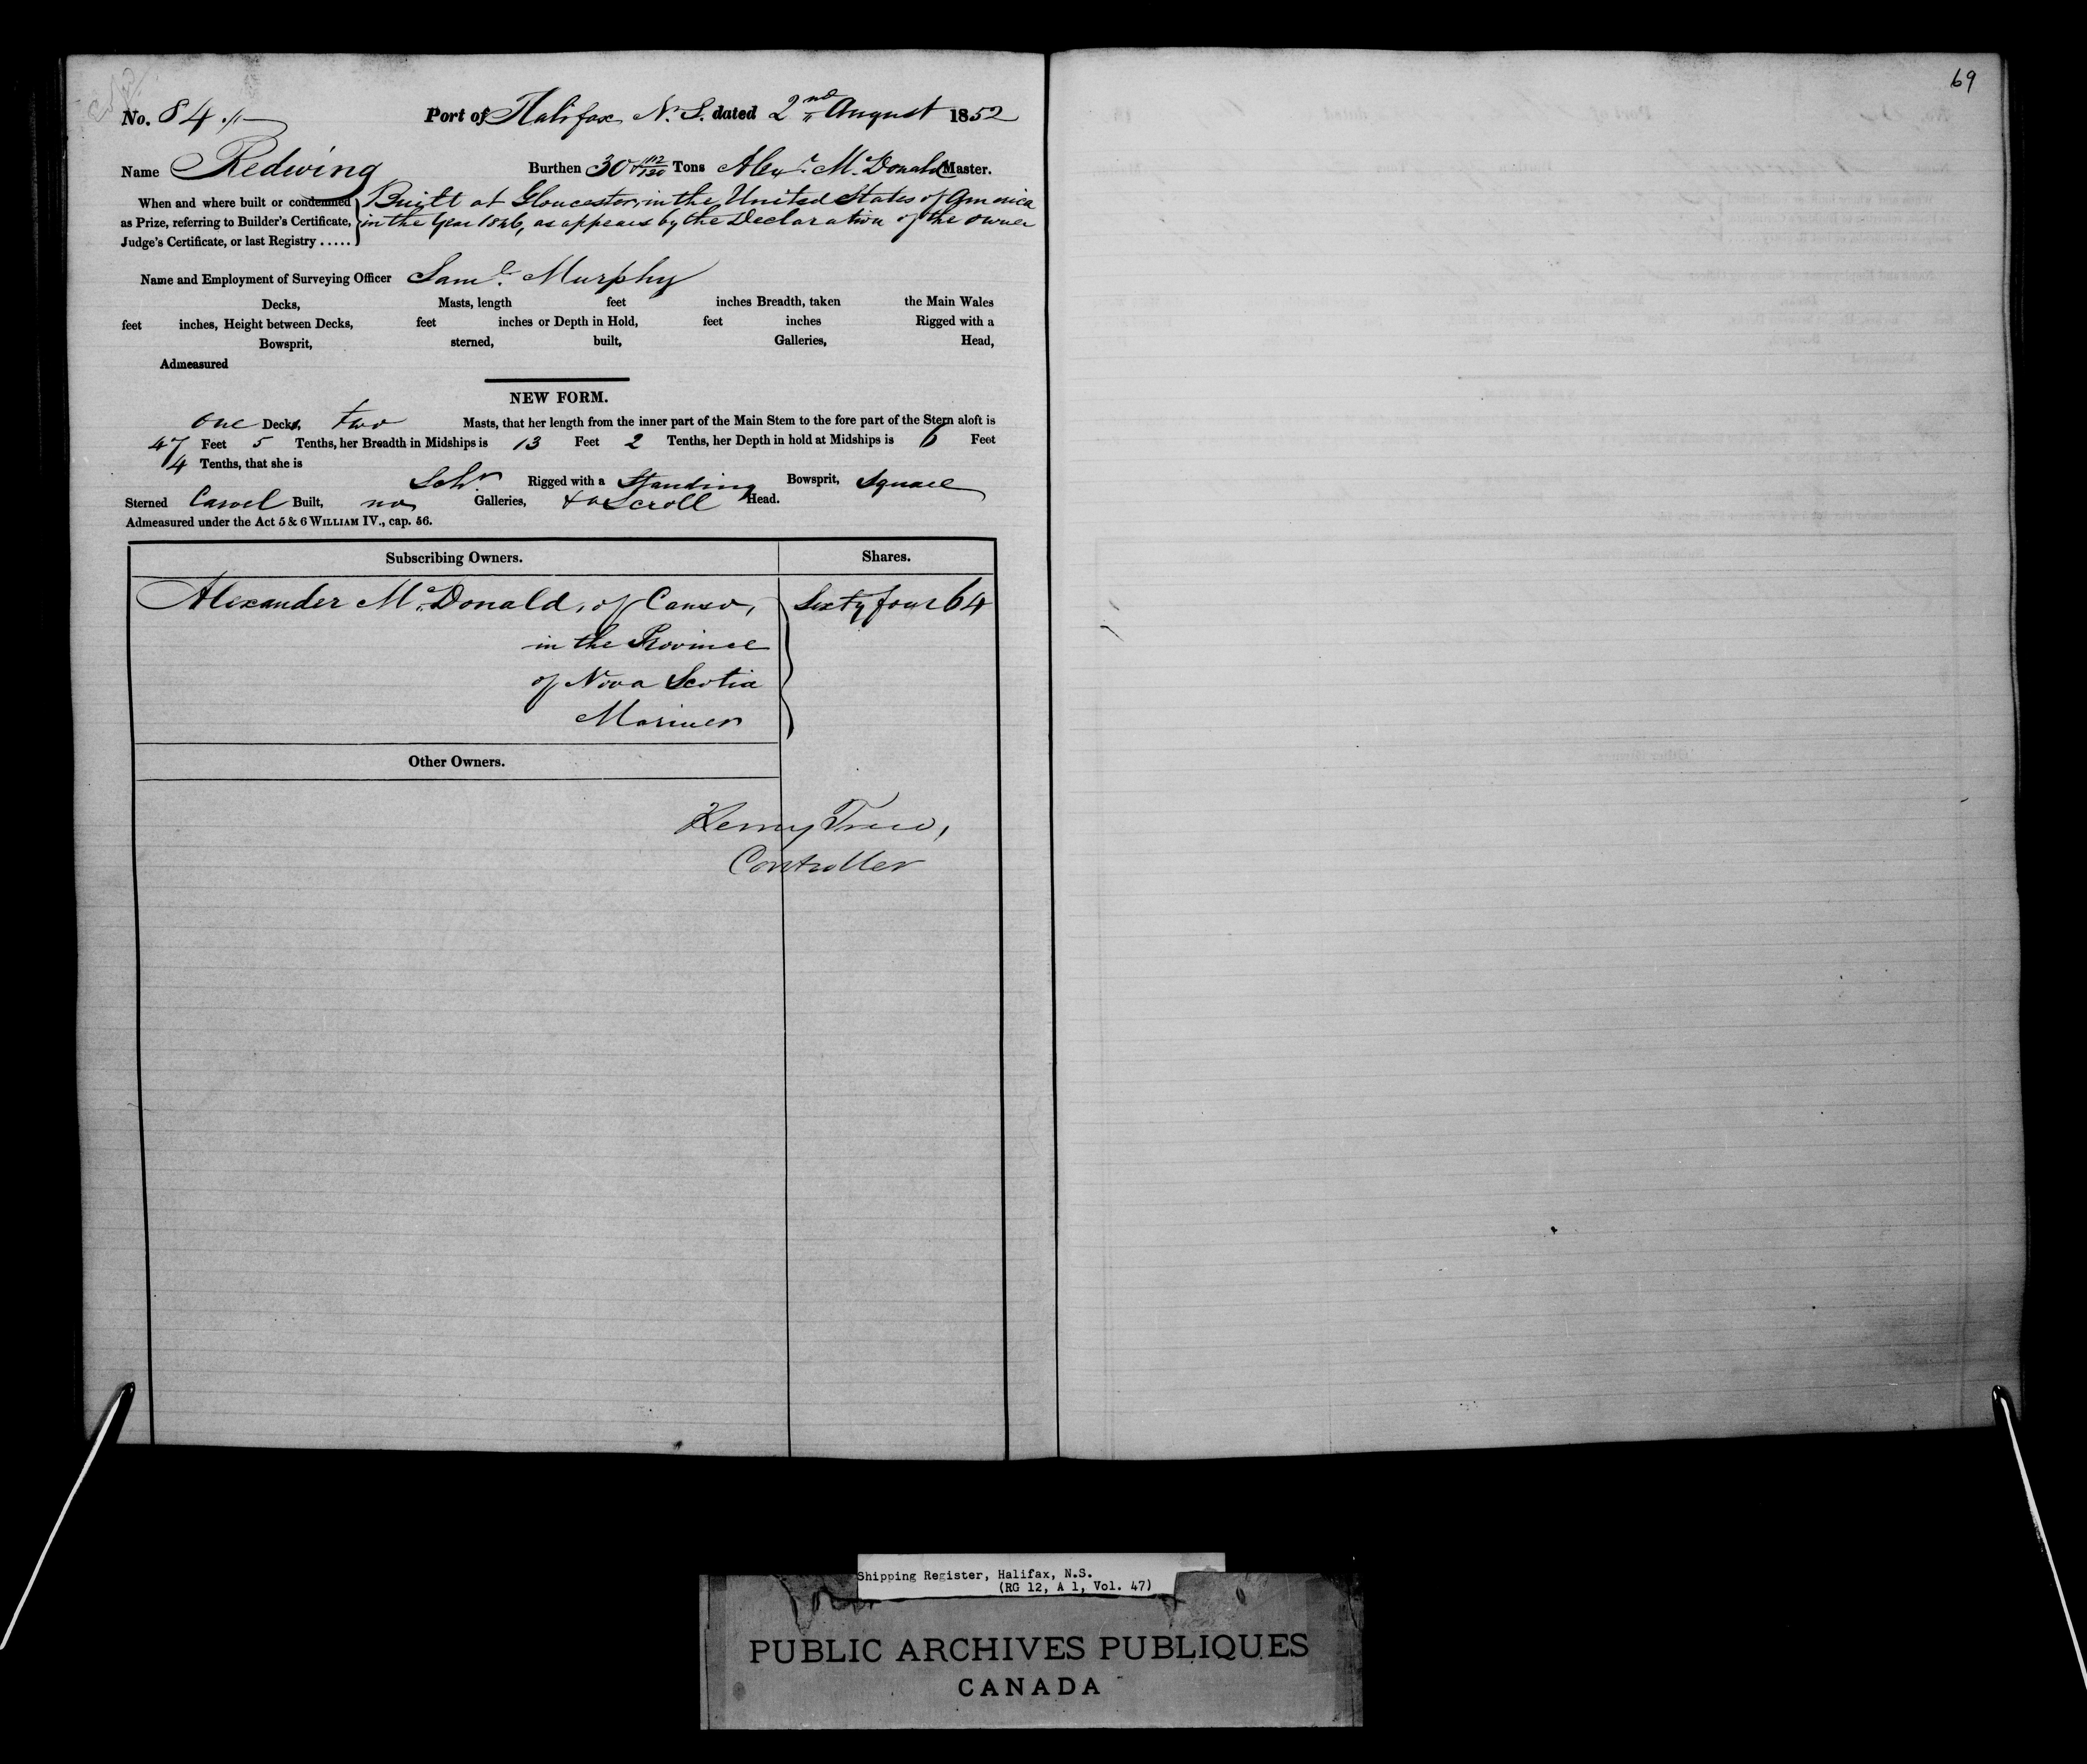 69
No. 84
Port of Halifax N. S. dated 2nd August 1852
Name Redwing Burthen 30 112/130 Tons Alexr McDonald Master.
When and where built or condemned as Prize, referring to Builder's Certificate, Judge's Certificate, or last Registry .....
Built at Gloucester, in the United States of America
in the Year 1826, as appears by the Declaration of the owner
Name and Employment of Surveying Officer Saml. Murphy
Decks, Masts, length feet inches Breadth, taken the Main Wales
feet inches, Height between Decks, feet inches or Depth in Hold, feet inches Rigged with a
Bowsprit, sterned, built, Galleries, Head,
Admeasured
NEW FORM.
one Deck, two Masts, that her length from the inner part of the Main Stem to the fore part of the Stern aloft is
47 Feet 5 Tenths, her Breadth in Midships is 13 Feet 2 Tenths, her Depth in hold at Midships is 6 Feet
4 Tenths, that she is
Schr Rigged with a Standing Bowsprit, Square
Sterned Carvel Built, no Galleries, & a Scroll Head.
Admeasured under the Act 5 & 6 WILLIAM IV., cap. 56.
Subscribing Owners. Shares.
Alexander McDonald, of Canso, Sixty four 64
in the Province
of Nova Scotia
Mariner
Other Owners.
Henry Trew,
Controller
Shipping Register, Halifax, N.S.
(RG 12, A 1, Vol. 47)
PUBLIC ARCHIVES PUBLIQUES
CANADA